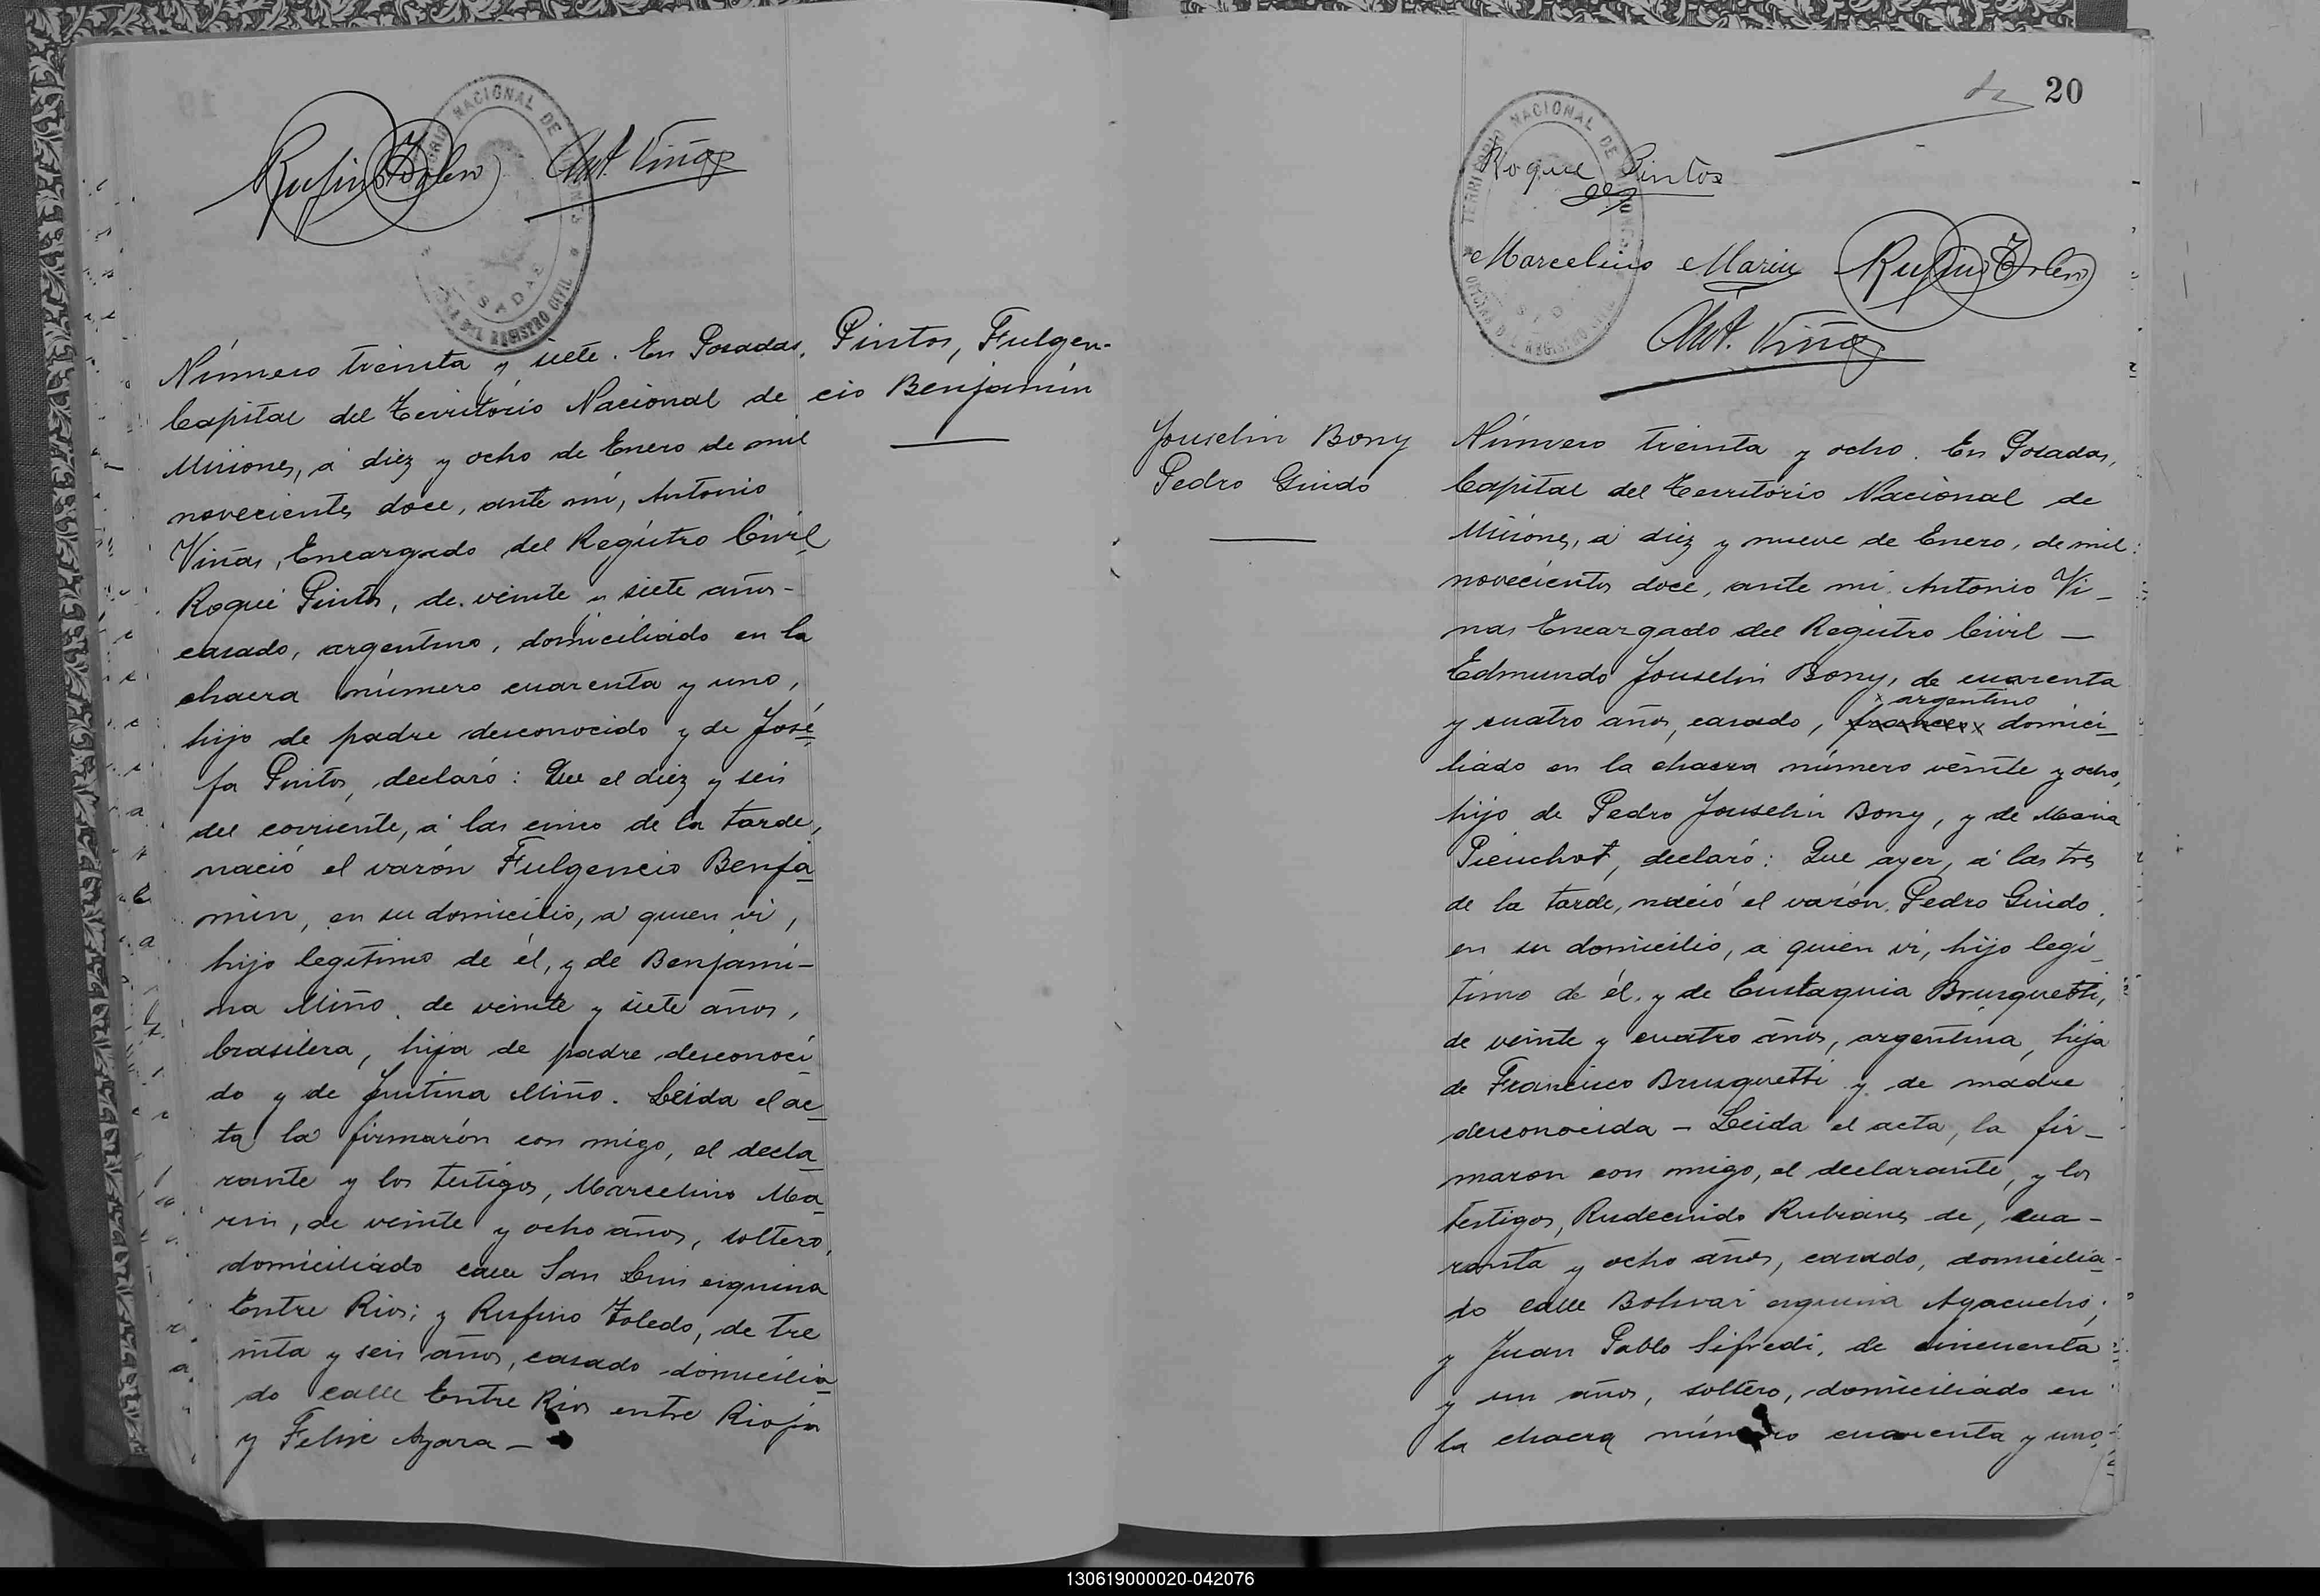 Rufino Toledo Ant. Viñas
TERRITORIO NACIONAL DE MISIONES
POSADAS
OFICINA DEL REGISTRO CIVIL
Pintos, Fulgen-
cio Benjamín
Número treinta y siete. En Posadas,
Capital del Territorio Nacional de
Misiones, á diez y ocho de Enero de mil
novecientos doce, ante mí, Antonio
Viñas, Encargado del Registro Civil
Roque Pintos, de veinte y siete años-
casado, argentino, domiciliado en la
chacra número cuarenta y uno,
hijo de padre desconocido y de José
fa Pintos, declaró: Que el diez y seis
del corriente, á las cinco de la tarde,
nació el varón Fulgencio Benja
min, en su domicilio, a quien vi,
hijo legítimo de él, y de Benjami-
na Miño, de veinte y siete años,
brasilera, hija de padre desconoci
do y de Justina Miño. Leida el ac
ta la firmarón con migo, el decla
rante y los testigos, Marcelino Ma
rin, de veinte y ocho años, soltero,
domiciliado calle San Luis esquina
Entre Rios; y Rufino Toledo, de tre
inta y seis años, casado domicilia
do calle Entre Rios entre Rioja
y Felix Azara -
20
TERRITORIO NACIONAL DE MISIONES
OFICINA DEL REGISTRO CIVIL
Roque Pintos
Marcelino Marin Rufino Toledo
Ant. Viñas
Jouselin Bony
Pedro Guido
Número treinta y ocho. En Posadas,
Capital del Territorio Nacional de
Misiones, á diez y nueve de Enero, de mil
novecientos doce, ante mi Antonio Vi-
nas Encargado del Registro Civil -
Edmundo Jouselin Bony, de cuarenta
argentino
y cuatro años, casado, frances domici-
liado en la chacra número veinte y ocho,
hijo de Pedro Jouselin Bony, y de Maria
Pieuchot, declaró: Que ayer, á las tres
de la tarde, nació el varón Pedro Guido
en su domicilio, a quien vi, hijo legi-
timo de él, y de Eustaquia Brusquetti,
de veinte y cuatro años, argentina, hija
de Francisco Brusquetti y de madre
desconocida - Leida el acta, la fir-
maron con migo, el declarante, y los
testigos, Rudecindo Rubianes de, cua-
renta y ocho años, casado, domicilia-
do calle Bolivar esquina Ayacucho;
y Juan Pablo Sifredi, de cincuenta
y un años, soltero, domiciliado en
la chacra número cuarenta y uno
130619000020-042076